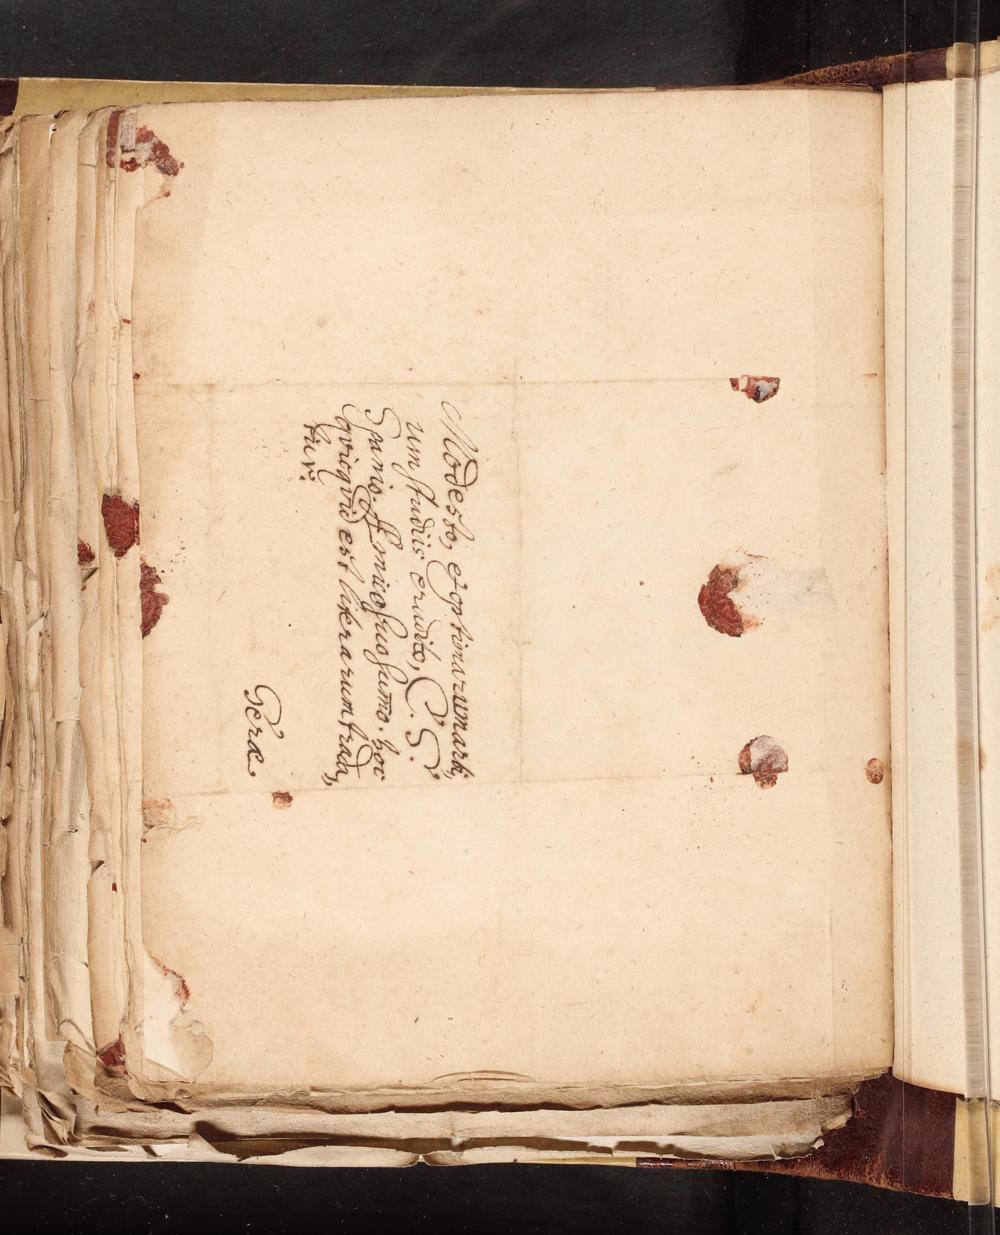 Modesto, & optimarum arti,
um studiis erudito, C. S.
Spanio Amico suo sumo. hoc
qvicqvid est literarum trada,
tur.
Geræ.